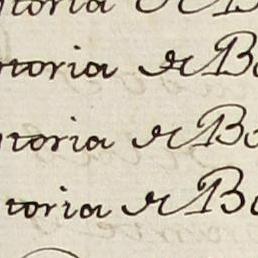 toria de B
toria de Bo
toria de Bo
toria de Bo